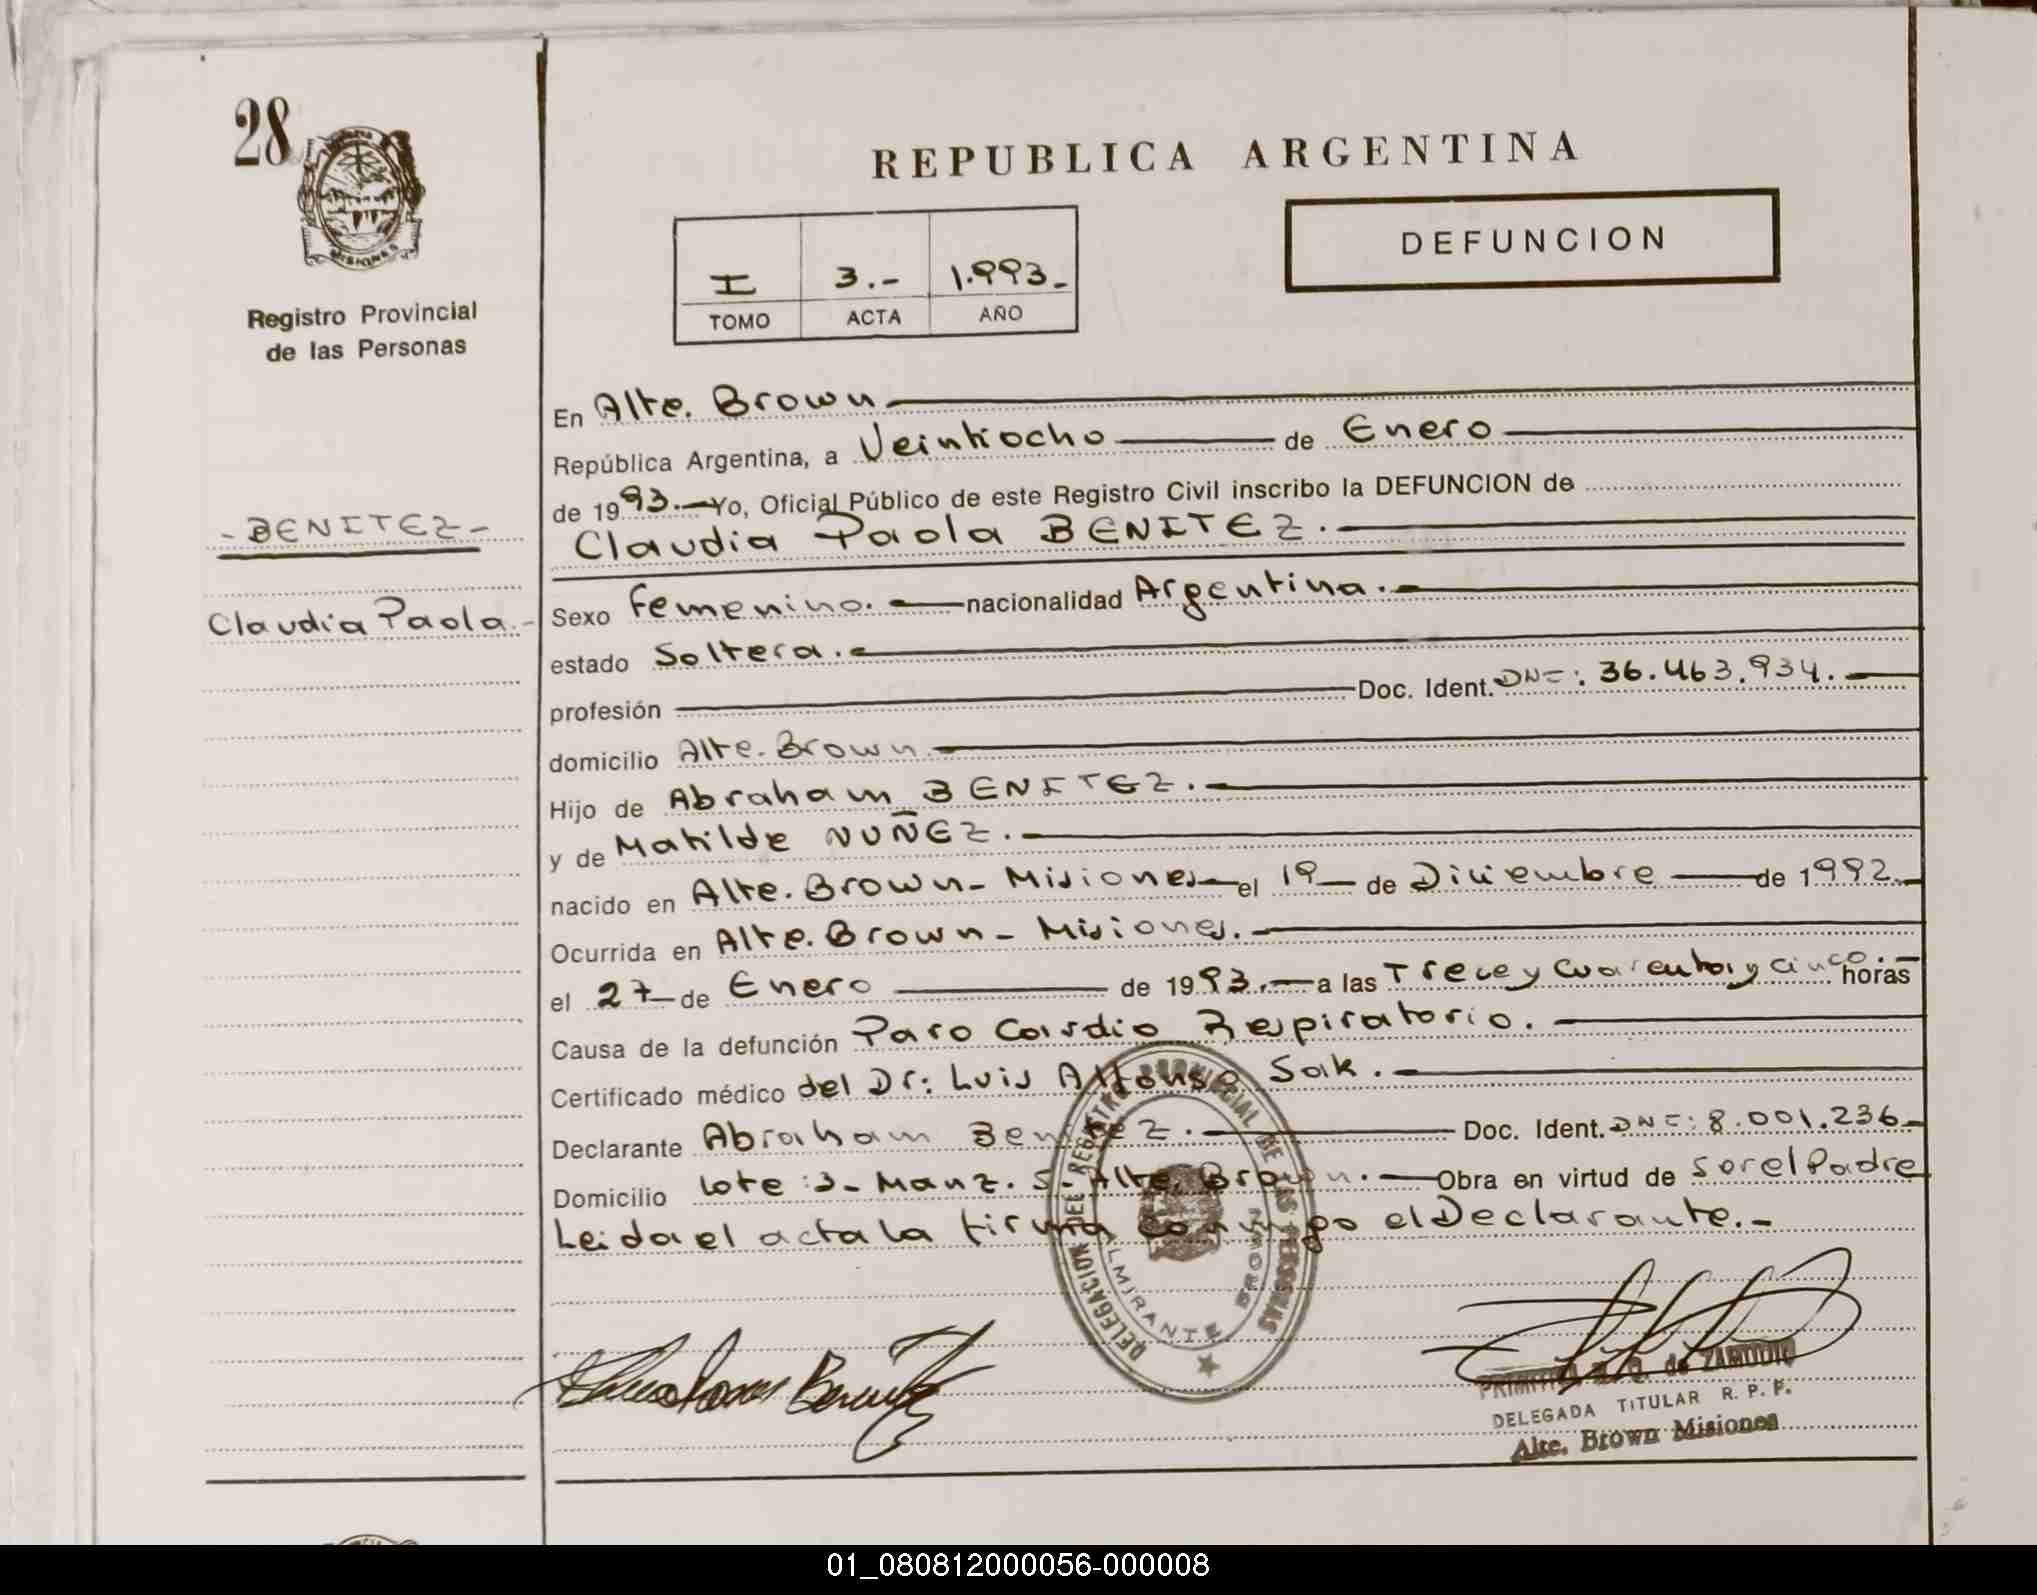 28
MISIONES
Registro Provincial
de las Personas
- BENITEZ -
Claudia Paola.-
REPUBLICA ARGENTINA
DEFUNCION
I 3.- 1.993.-
TOMO ACTA AÑO
En Alte. Brown
República Argentina, a Veintiocho de Enero
de 1993.- Yo, Oficial Público de este Registro Civil inscribo la DEFUNCION de
Claudia Paola BENITEZ.
Sexo Femenino. nacionalidad Argentina.
estado Soltera.
profesión Doc. Ident. DNI: 36.463.934.
domicilio Alte. Brown.
Hijo de Abraham BENITEZ.
y de Matilde NUÑEZ.
nacido en Alte. Brown - Misiones el 19 de Diciembre de 1992.
Ocurrida en Alte. Brown - Misiones.
el 27 de Enero de 1993.- a las Trece y Cuarenta y cinco.- horas
Causa de la defunción Paro Cardio Respiratorio.
Certificado médico del Dr: Luis Alfonso Sak.
Declarante Abraham Benitez. Doc. Ident. DNI: 8.001.236-
Domicilio lote: 3- Manz. 5- Alte. Brown. Obra en virtud de Ser el Padre
Leida el acta la firma conmigo el Declarante.-
DELEGACION DEL REGISTRO PROVINCIAL DE LAS PERSONAS
ALMIRANTE BROWN
de ZAMUDIO
DELEGADA TITULAR R. P. P.
Alte. Brown Misiones
01_080812000056-000008